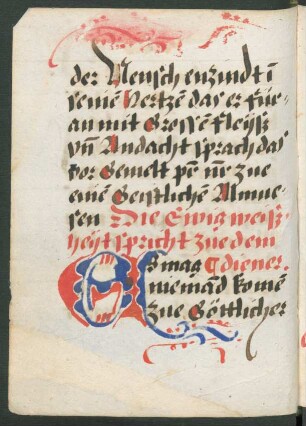 der Mensch enzindt ī
seinē hertzē das er füe-
an mit Grossē fleyſz
vn̄ Andacht sprach das
vor Gemelt pr̄ nr̄ zue
einē Geistlichē Almue-
sen Die Ewig weiſz-
heyt spricht zue dem
Es mag C diener
niemā̄d komē
zue Göttlicher